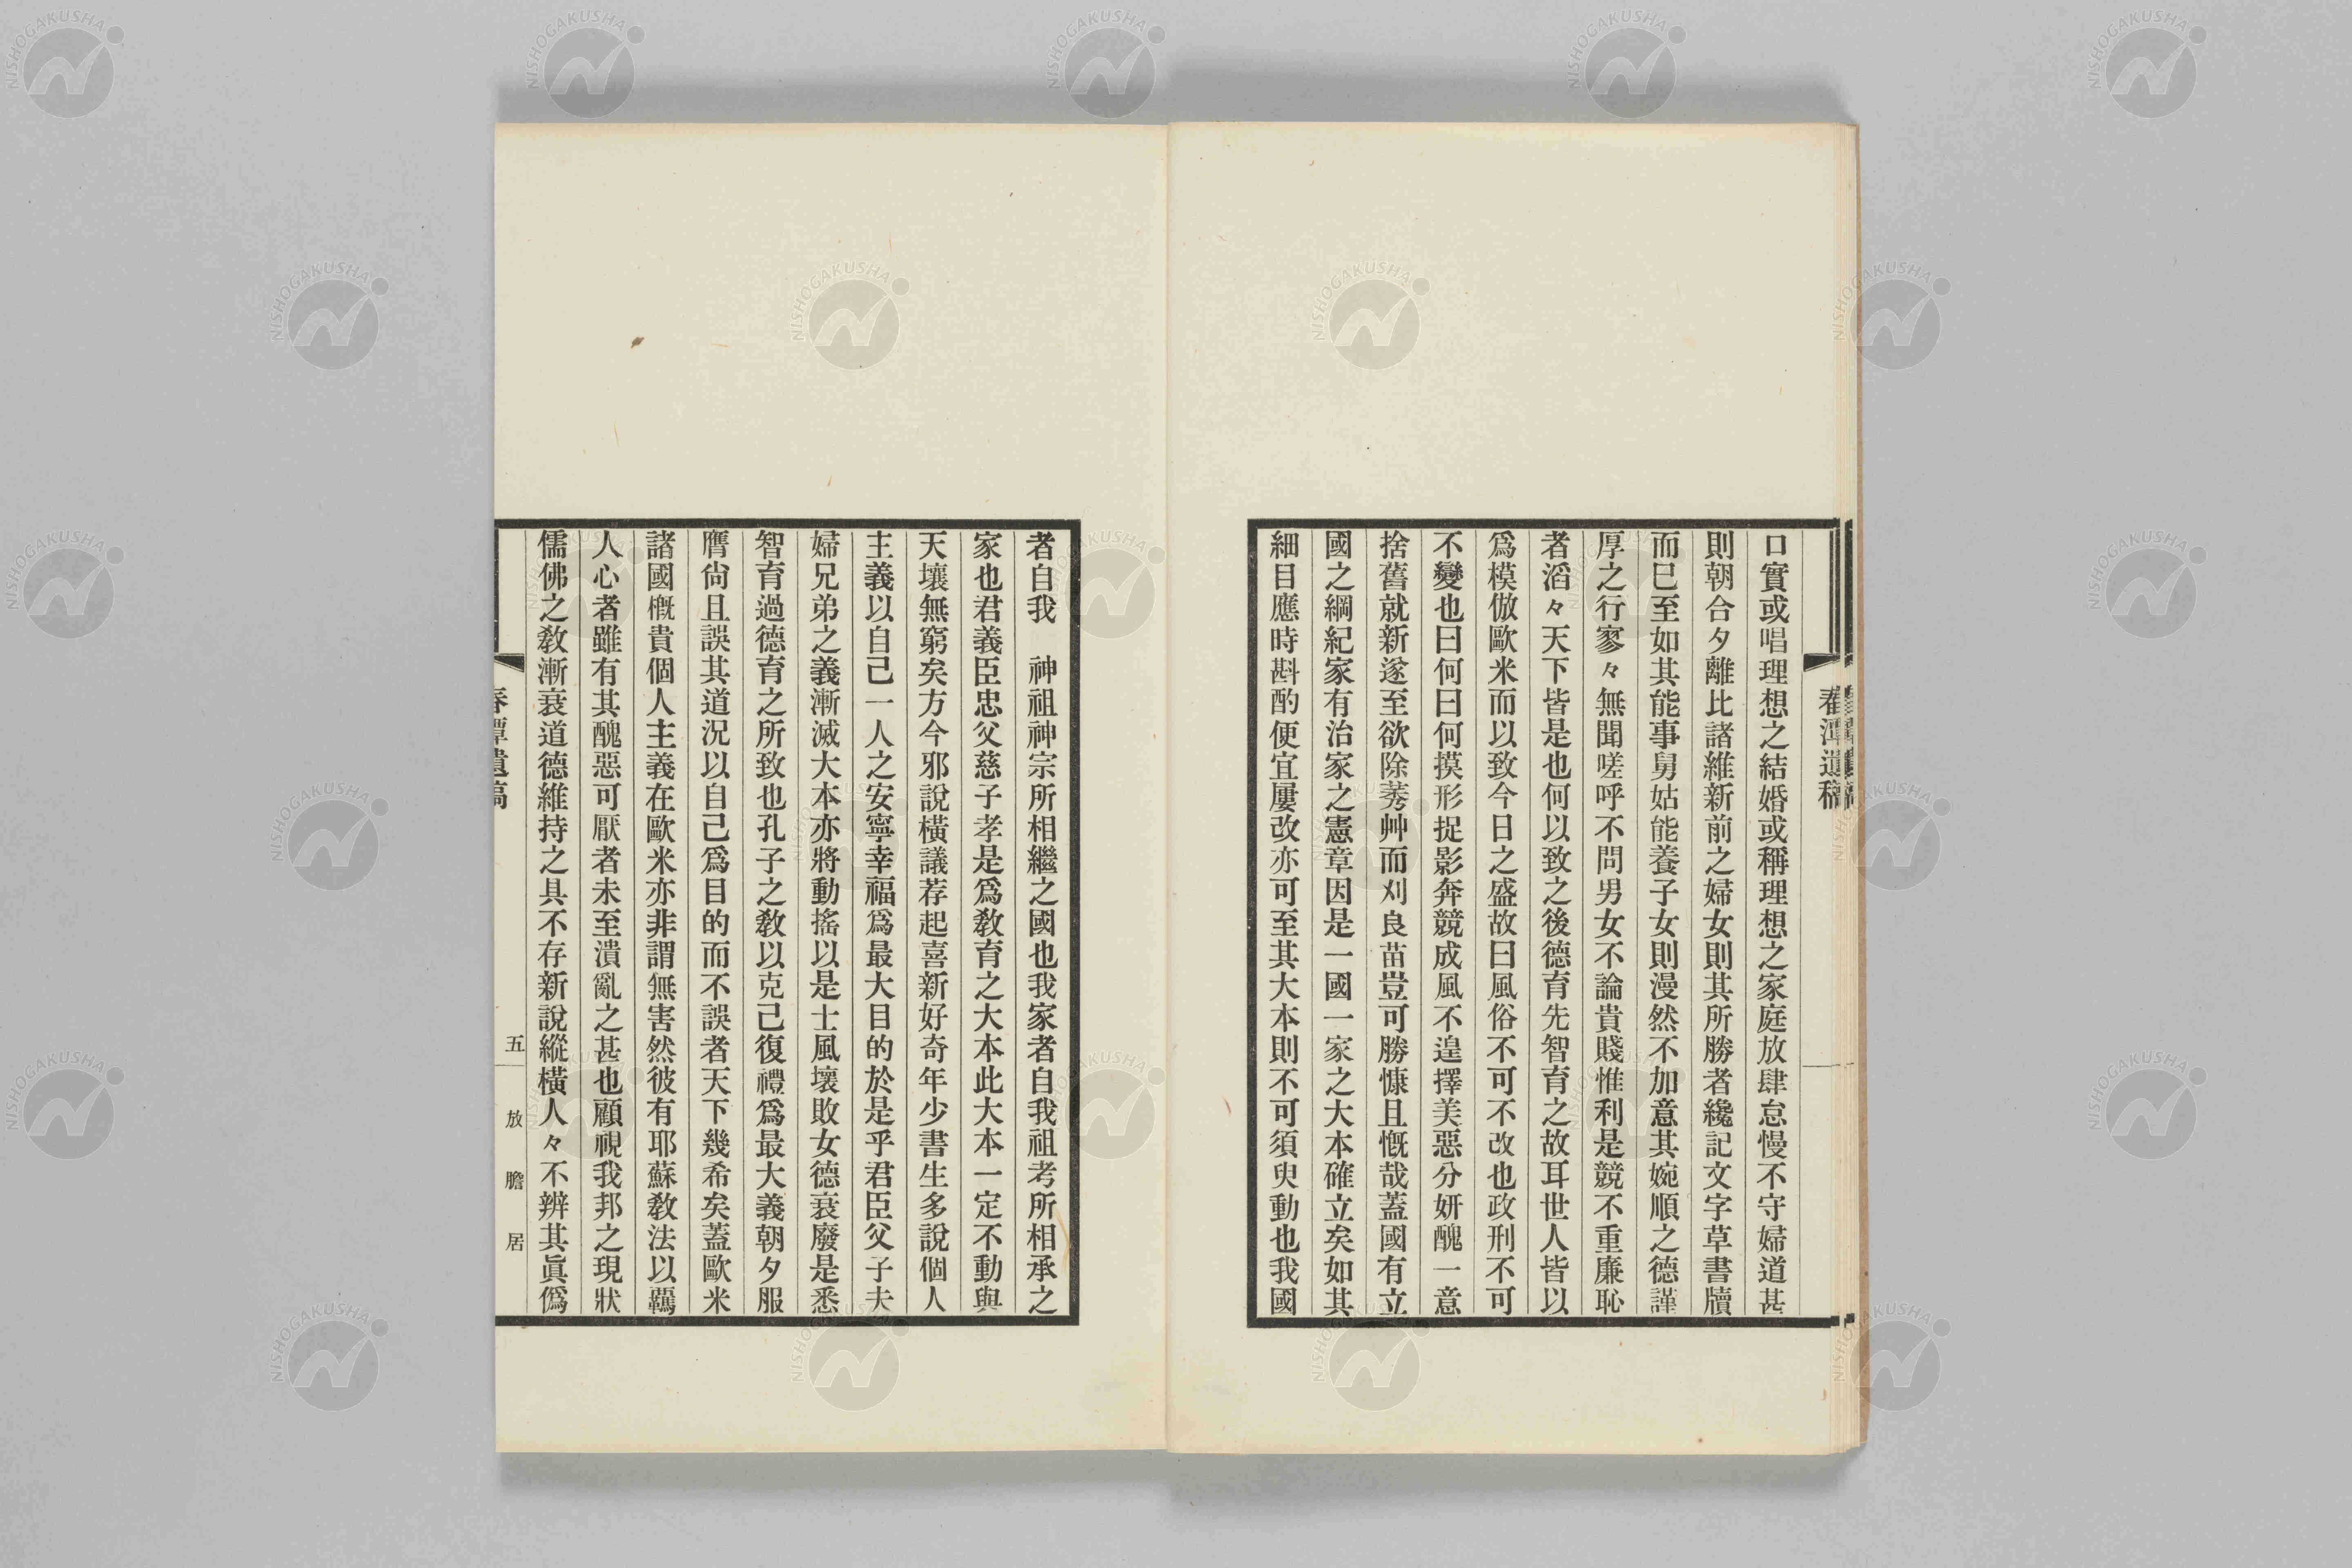 春潭遺稿
口實或唱理想之結婚或稱理想之家庭放肆怠慢不守婦道甚
則朝合夕離比諸維新前之婦女則其所勝者纔記文字草書牘
而已至如其能事舅姑能養子女則漫然不加意其婉順之德謹
厚之行寥々無聞嗟呼不問男女不論貴賤惟利是競不重廉恥
者滔々天下皆是也何以致之後德育先智育之故耳世人皆以
爲模倣歐米而以致今日之盛故曰風俗不可不改也政刑不可
不變也曰何曰何摸形捉影奔競成風不遑擇美惡分妍醜一意
捨舊就新遂至欲除莠艸而刈良苗豈可勝慷且慨哉蓋國有立
國之綱紀家有治家之憲章因是一國一家之大本確立矣如其
細目應時斟酌便宜屢改亦可至其大本則不可須臾動也我國
者自我　神祖神宗所相繼之國也我家者自我祖考所相承之
家也君義臣忠父慈子孝是爲敎育之大本此大本一定不動與
天壤無窮矣方今邪說橫議荐起喜新好奇年少書生多說個人
主義以自己一人之安寧幸福爲最大目的於是乎君臣父子夫
婦兄弟之義漸滅大本亦將動搖以是士風壞敗女德衰廢是悉
智育過德育之所致也孔子之敎以克己復禮爲最大義朝夕服
膺尙且誤其道況以自己爲目的而不誤者天下幾希矣蓋歐米
諸國槪貴個人主義在歐米亦非謂無害然彼有耶蘇敎法以羈
人心者雖有其醜惡可厭者未至潰亂之甚也顧視我邦之現狀
儒佛之敎漸衰道德維持之具不存新說縱橫人々不辨其眞僞
春潭遺稿
五
放膽居
NISHOGAKUSHA